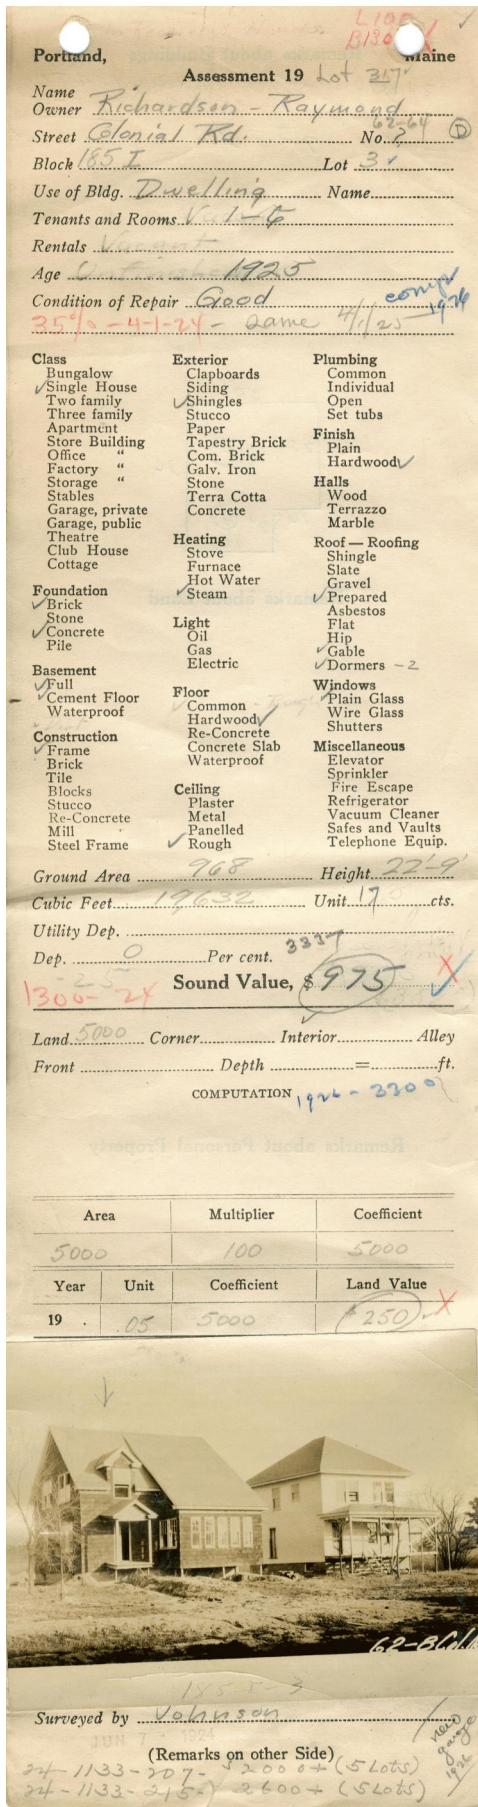 L 10 E
B 130
Portland, Maine
Assessment 19 Lot 317
Name
Owner Richardson - Raymond
62-64
Street Colonial Rd. No. ? D
Block 185 I Lot 3
Use of Bldg. Dwelling Name
Tenants and Rooms 1-6
Rentals Vacant
Age Unfinished 1925
Condition of Repair Good comp 1926
35% - 4-1-24 - same 4/1/25
Class
Bungalow
✓Single House
Two family
Three family
Apartment
Store Building
Office "
Factory "
Storage "
Stables
Garage, private
Garage, public
Theatre
Club House
Cottage
Foundation
✓Brick
Stone
✓Concrete
Pile
Basement
✓Full
✓Cement Floor
Waterproof
Construction
✓Frame
Brick
Tile
Blocks
Stucco
Re-Concrete
Mill
Steel Frame
Exterior
Clapboards
Siding
✓Shingles
Stucco
Paper
Tapestry Brick
Com. Brick
Galv. Iron
Stone
Terra Cotta
Concrete
Heating
Stove
Furnace
Hot Water
✓Steam
Light
Oil
Gas
Electric
Floor
Common
Hardwood✓
Re-Concrete
Concrete Slab
Waterproof
Ceiling
Plaster
Metal
Panelled
✓Rough
Plumbing
Common
Individual
Open
Set tubs
Finish
Plain
Hardwood✓
Halls
Wood
Terrazzo
Marble
Roof — Roofing
Shingle
Slate
Gravel
✓Prepared
Asbestos
Flat
Hip
✓Gable
✓Dormers - 2
Windows
✓Plain Glass
Wire Glass
Shutters
Miscellaneous
Elevator
Sprinkler
Fire Escape
Refrigerator
Vacuum Cleaner
Safes and Vaults
Telephone Equip.
Ground Area 968 Height 22'-9"
Cubic Feet 19,632 Unit 17 cts.
Utility Dep.
Dep. 0 Per cent. 3337
-25
1300-24 Sound Value, $ 975 X
Land 5000 Corner Interior Alley
Front Depth = ft.
COMPUTATION 1926 - 3300
Area Multiplier Coefficient
5000 100 5000
Year Unit Coefficient Land Value
19 . .05 5000 $250 X
62-B Col.
185 I-3
Surveyed by Johnson
JUN 7 1924
(Remarks on other Side)
new garage 1926
24-1133-207- $2000+ (5 Lots)
24-1133-215-) 2600+ (5 Lots)